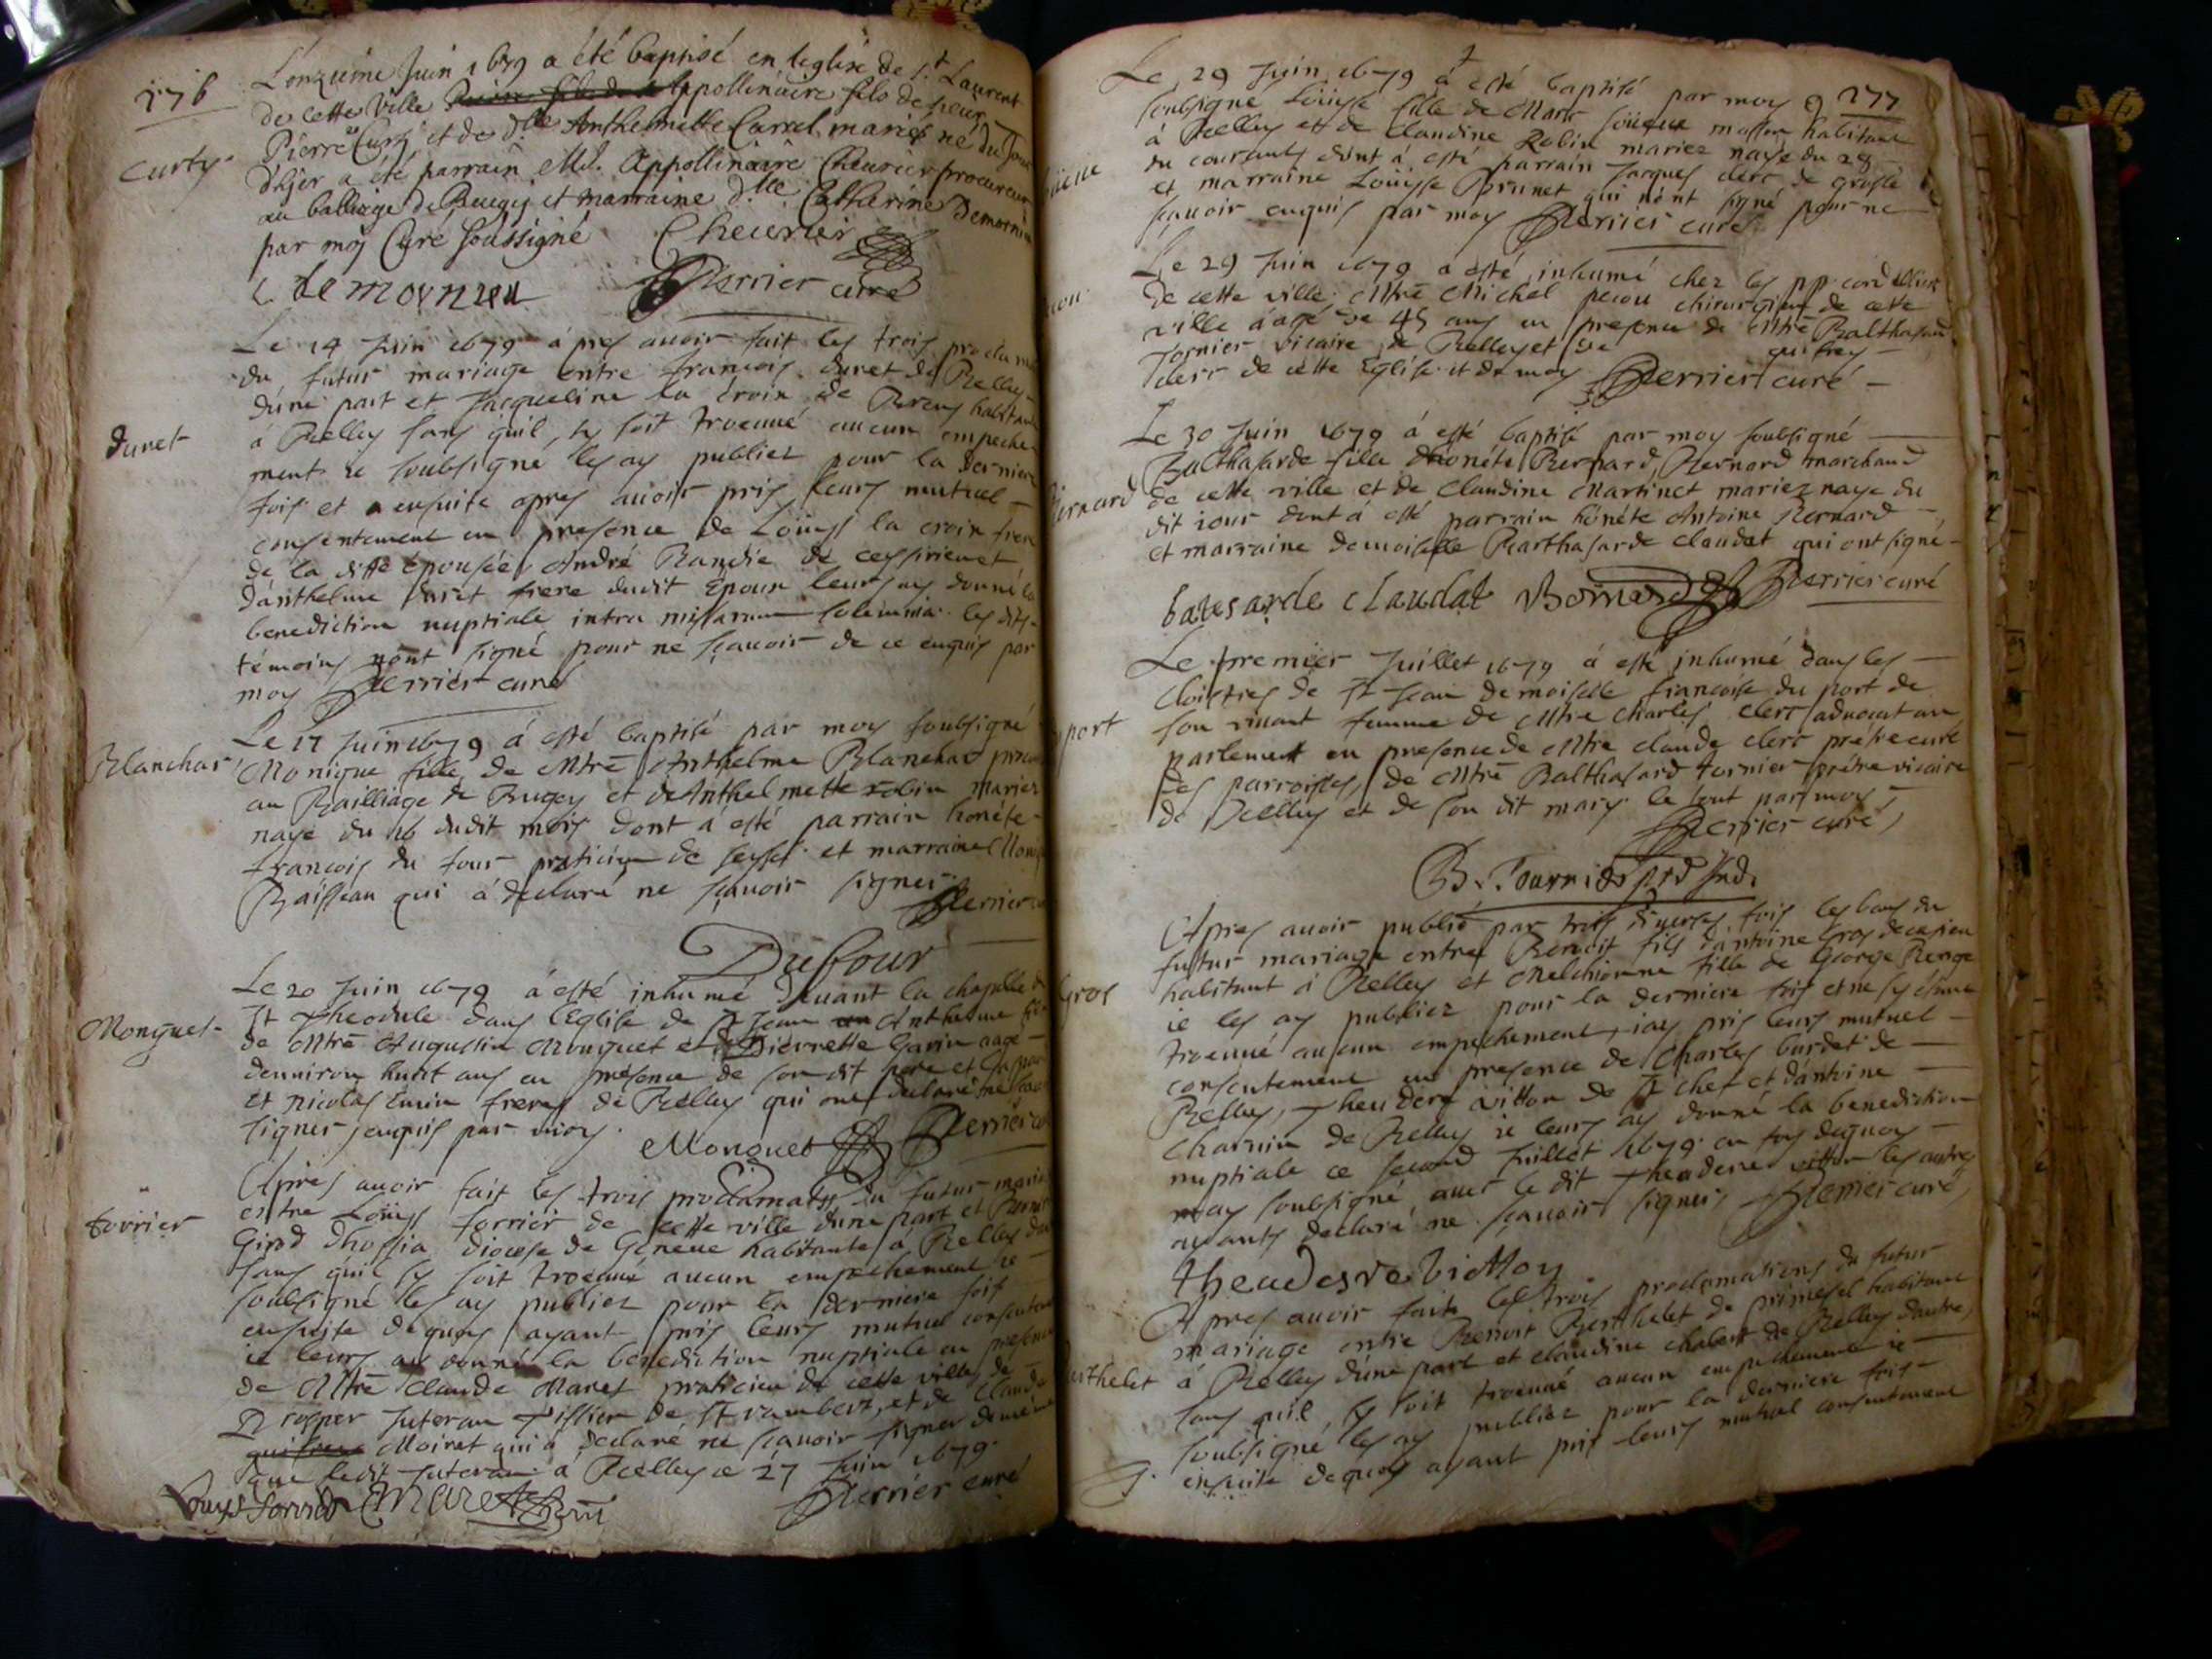 276
L'onzieme Juin 1679 a été baptisé en leglise de St Laurent
de cette ville Appollinaire fils de sieur
Curty
Pierre Curty et de dlle Anthelmette Carrel mariés né du jour
d'hjer a été parrain Mr. Appollinaire Cheurier procureur
au balliage de Beugey et marraine dlle Catharine Demornieu
par moy Curé soussigné Cheurier
C. demornieu Perrier curé
Le 14 Juin 1679 á pres auoir fait les trois proclama
du futur mariage entre françois duret de Belley
dune part et Jacqueline la croix de habitant
Duret
á Belley sans quil sy soit troeuué aucun empeche
ment ie soubsigné les ay publiez pour la derniere
fois et ensuite apres auoir pris leurs mutuel
consentement en presence de Loüys la croix frere
de la ditte épousée André de
d'anthelme duret frere dudit Epoux leurs ay donné la
benediction nuptiale intra missarum solemnia les dits
témoins n'ont signé pour ne sçauoir de ce enquis par
moy Perrier curé
Le 17 Juin 1679 á esté baptisé par moy soubsigné
Blanchar
Monique fille de Mtre Anthelme Blanchard
au Bailliage de Bugey et de Anthelmette robin mariez
naye du 16 dudit mois dont á esté parrain honéte
françois du four praticien de seyssel et marraine
qui á declaré ne sçauoir signer Perrier
Dufour
Le 20 Juin 1679 á esté inhumé deuant la chapelle
St Theodule dans l'Eglise de St Jean Anthelme
Monguet
de Mtre Augustin Monguet et Pierrette Garin aagé
denuiron huit ans en presence de son dit pere et
et nicolas freres de Belley qui ont declaré ne
signer enquis par moy. Monguet Perrier
Apres auoir fait les trois proclamatns du futur maria
forrier
entre Loüys forrier de cette ville dune part et
Girod diocese de Geneue habitante á Belley
sans quil sy soit troeuué aucun empechement ie
soubsigné les ay publiez pour la derniere fois
ensuite dequoy ayant pris leurs mutuel consentem
ie leurs ay donné la benediction nuptiale en presence
de Mtre Claude Maret praticien de cette ville, de
de St rambert, et de Claude
Moiret qui á declaré ne sçauoir signer de meme
que ledit á Belley ce 27 Juin 1679
Louys forrier Maret Perrier curé
277
Le 29 Juin 1679 á esté baptisé par moy
soubsigné Loüyse fille de Marc habitant
á Belley et de Claudine Robin mariez naye du 28
du courant dont á esté parrain Jacques clerc de
et marraine Loüysse Brunet qui n'ont signé pour ne
sçauoir enquis par moy Perrier curé
Le 29 Juin 1679 a esté inhumé chez les pp. cordelliers
de cette ville Mtre Michel chirurgien de cete
ville áagé de 45 ans en presence de Mtre Balthasard
fornier vicaire de Belley et de
clerc de cette Eglise et de moy Perrier curé
Le 30 Juin 1679 á esté baptisé par moy soubsigné
Balthasarde fille d'honéte Bernard Bernard marchand
Bernard
de cette ville et de Claudine Martinet mariez naye du
dit iour dont á esté parrain honéte Antoine Bernard
et marraine demoiselle Barthasarde claudat qui ont signé
batesarde claudat Bernard Perrier curé
Le premier Juillet 1679 á esté inhumé dans les
cloistres de St Jean demoiselle françoise du port de
port
son viuant femme de Mtre Charles clerc aduocat au
parlement en presence de Mtre claude clerc prétre curé
des parroisses, de Mtre Balthasard fornier prétre vicaire
de Belley et de son dit mary le tout par moy
Perrier curé
B. Fournier
Apres auoir publié par trois diuerses fois les bans du
futur mariage entre Benoit fils d'antoine Gros
Gros
habitant á Belley et Melchionne fille de George
ie les ay publiez pour la derniere fois et ne sy étant
troeuué aucun empechement, iay pris leurs mutuel
consentement en presence de Charles burdet de
Belley, Theudere vitton de St chef et d'antoine
Charuin de Belley ie leurs ay donné la benediction
nuptiale ce second Juillet 1679 en foy dequoy
may soubsigné auec le dit Theudere vitton les autres
ayants declaré ne sçauoir signer, Perrier curé
Apres auoir fait les trois proclamations du futur
mariage entre Benoit Berthelet de habitant
Berthelet
á Belley dune part et claudine chabert de Belley dautre,
sans quil sy soit troeuué aucun empechement ie
soubsigné les ay publiez pour la derniere fois
ensuite dequoy ayant pris leurs mutuel consentement